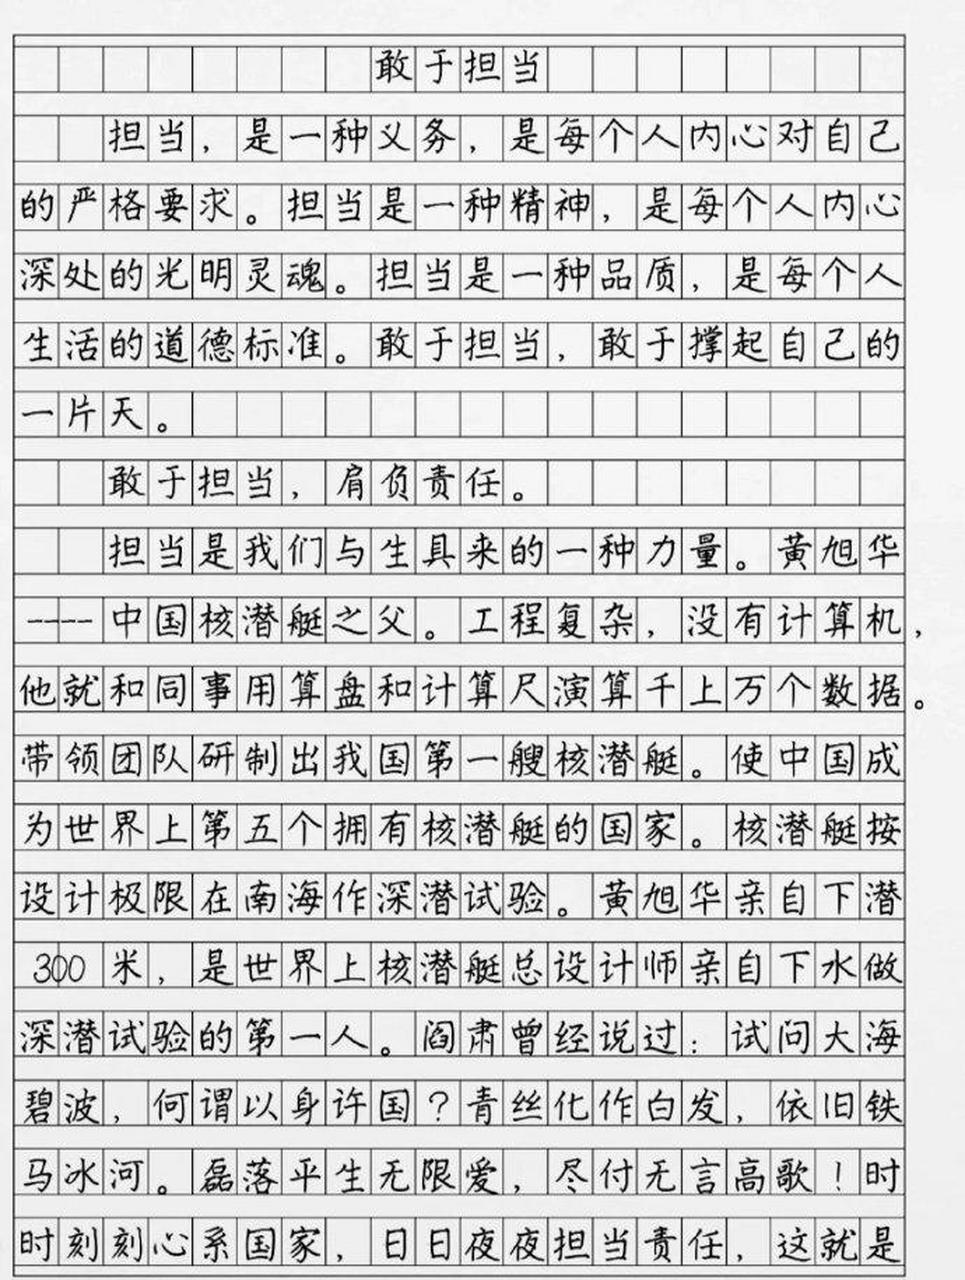 敢于担当
担当，是一种义务，是每个人内心对自己
的严格要求。担当是一种精神，是每个人内心
深处的光明灵魂。担当是一种品质，是每个人
生活的道德标准。敢于担当，敢于撑起自己的
一片天。
敢于担当，肩负责任。
担当是我们与生具来的一种力量。黄旭华
----中国核潜艇之父。工程复杂，没有计算机，
他就和同事用算盘和计算尺演算千上万个数据。
带领团队研制出我国第一艘核潜艇。使中国成
为世界上第五个拥有核潜艇的国家。核潜艇按
设计极限在南海作深潜试验。黄旭华亲自下潜
300米，是世界上核潜艇总设计师亲自下水做
深潜试验的第一人。阎肃曾经说过：试问大海
碧波，何谓以身许国？青丝化作白发，依旧铁
马冰河。磊落平生无限爱，尽付无言高歌！时
时刻刻心系国家，日日夜夜担当责任，这就是